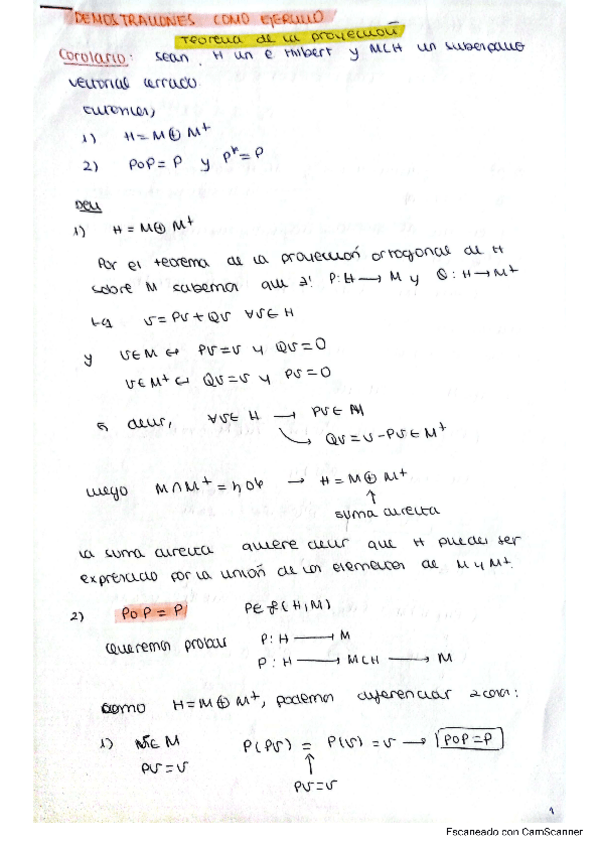 DEMOSTRACIONES COMO EJERCICIO
Teorema de la proyección
Corolario: sean H un e Hilbert y MCH un subespacio
vectorial cerrado.
Entonces,
1) H = M⊕M⊥
2) PoP = P y P* = P
Dem
1) H = M⊕M⊥
Por el teorema de la proyección ortogonal de H
sobre M sabemos que ∃! P: H → M y Q: H → M⊥
tq v = Pv + Qv ∀v ∈ H
y v∈M ↔ Pv = v y Qv = 0
v∈M⊥ ↔ Qv = v y Pv = 0
es decir, ∀v∈ H → Pv ∈ M
↘ Qv = v - Pv ∈ M⊥
luego M∩M⊥ = {0} → H = M⊕M⊥
↑
suma directa
la suma directa quiere decir que H puede ser
expresado por la unión de los elementos de M y M⊥.
2) PoP = P P∈ℒ(H,M)
Queremos probar P: H → M
P: H → MCH → M
Como H = M⊕M⊥, podemos diferenciar 2 cosas:
1) v∈ M P(Pv) = P(v) = v → PoP = P
Pv = v ↑
Pv = v
1
Escaneado con CamScanner